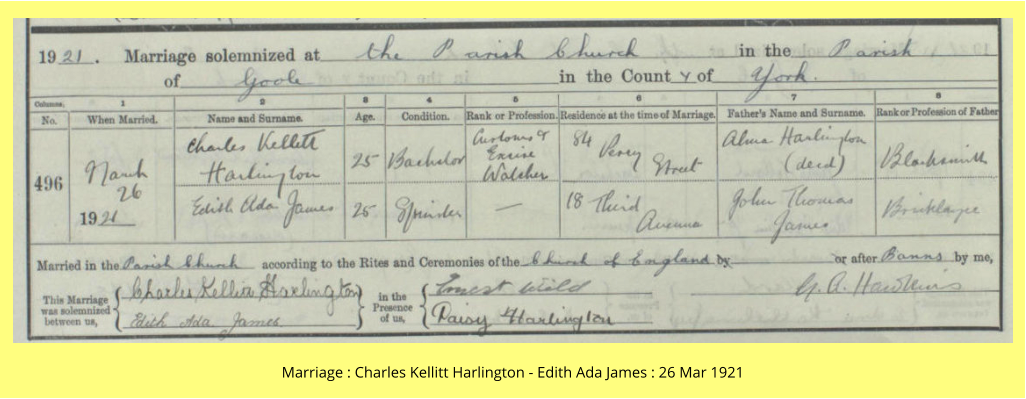 1921. Marriage solemnized at the Parish Church in the Parish
of Goole in the County of York.
Columns. 1 2 3 4 5 6 7 8
No. When Married. Name and Surname. Age. Condition. Rank or Profession. Residence at the time of Marriage. Father's Name and Surname. Rank or Profession of Father
496 March 26 1921 Charles Kellett Harlington 25 Bachelor Customs & Excise Watcher 84 Percy Street Alma Harlington (decd) Blacksmith
Edith Ada James 25 Spinster — 18 Third Avenue John Thomas James Bricklayer
Married in the Parish Church according to the Rites and Ceremonies of the Church of England by or after Banns by me,
This Marriage was solemnized between us, Charles Kellitt Harlington in the Presence of us, Ernest Wild G. A. Hawkins
Edith Ada James Daisy Harlington
Marriage : Charles Kellitt Harlington - Edith Ada James : 26 Mar 1921